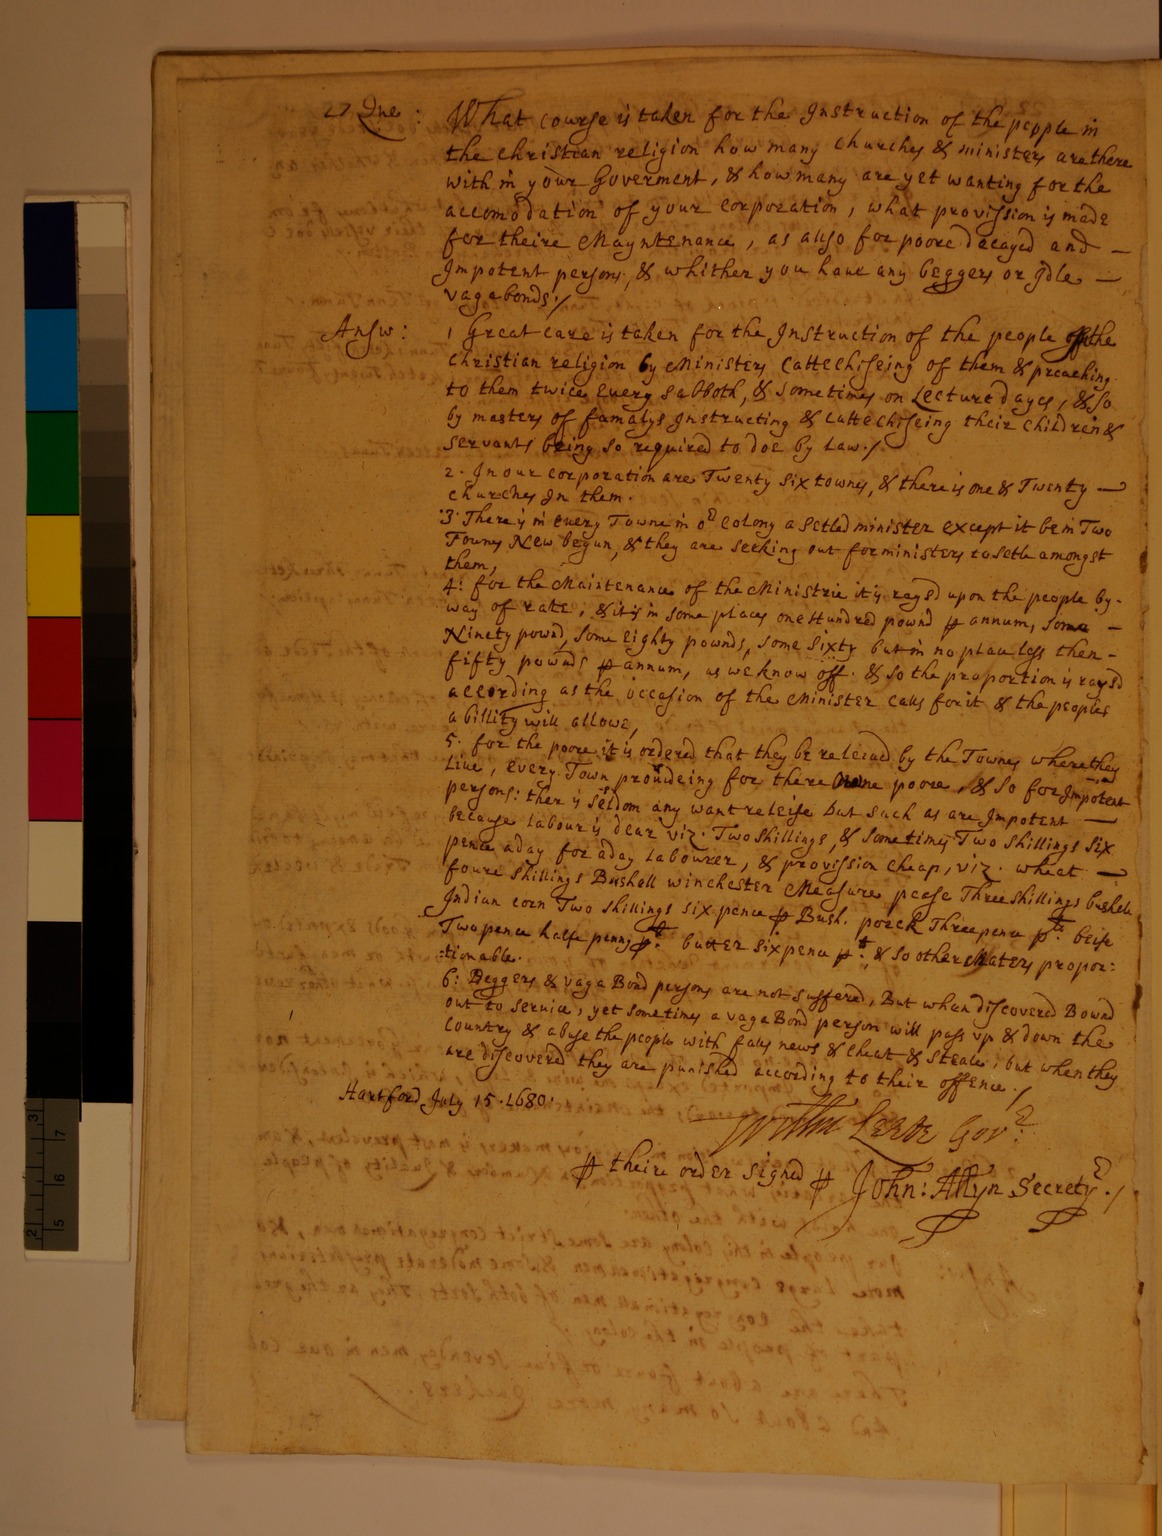 27 Que: What course is taken for the Instruction of the people in
the christian religion how many churches & ministers are there
with in your Goverment, & how many are yet wanting for the
accomodation of your corporation, what provission is made
for theire Mayntenance, as allso for poore decayed and —
Impotent persons, & whither you have any beggers or Idle —
vagabonds /
Answ: 1 Great care is taken for the Instruction of the people off the
christian religion by Ministers Cattechiseing of them & preaching
to them twice every sabboth, & sometimes on Lecture dayes, & so
by masters of famalys Instructing & cattechiseing their children &
servants being so required to doe by law./
2. In our corporation are Twenty six townes, & there is one & Twenty —
churches In them.
3 There is in every Towne in or colony a setled minister except it be in Two
Townes New begun, & they are seeking out for ministers to setle amongst
them,
4: for the Maintenance of the Ministrie it is raysd upon the people by-
way of rate, & it is in some places one Hundred pownd ⅌ annum, some —
Ninety pownd, some eighty pownds, some sixty but in no place less then -
fifty pownds ⅌ annum, as we know off. & so the proportion is raysd
according as the occasion of the Minister calls for it & the peoples
abillity will allowe,
5. for the poore it is ordered that they be releived by the Townes where they
Live, every Town provideing for there owne poore, & so for Impotent
persons: there is seldom any want releife but such as are Impotent —
because labour is dear viz. Two shillings, & sometimes Two shillings six
pence a day for a day labourer, & provission cheap, viz. wheat —
foure shillings Bushell winchester Measure pease Three shillings bushell
Indian corn Two shillings six pence ⅌ Bush. porck Three pence pr li beife
Two pence halfe penny ⅌ li butter six pence ⅌ li & so other Maters propor:
:tionable.
6: Beggers & vaga Bond persons are not suffered, But when discovered Bownd
out to service, yet sometimes a vaga Bond person will pass up & down the
Country & abuse the people with falls news & cheat & steale, but when they
are discovered they are punished according to their offence./
Hartford July 15. 1680.
Willm Leete Govr
⅌ theire order signed ⅌ John: Allyn Secretry./